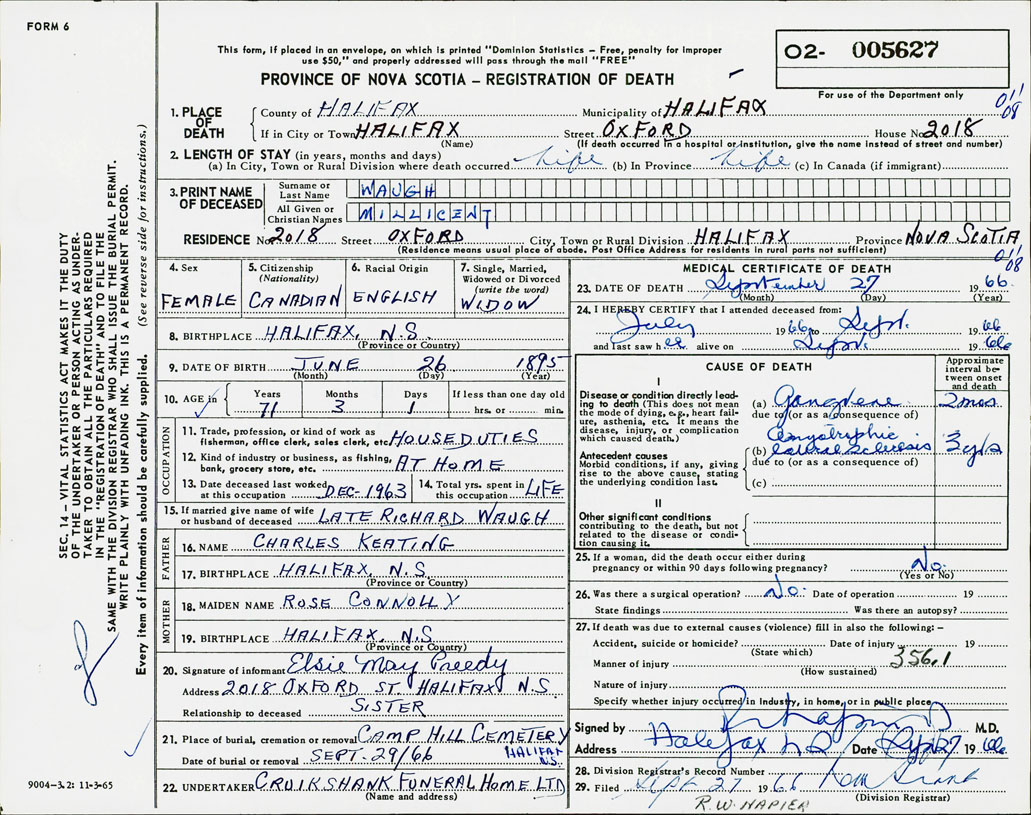 FORM 6
This form, if placed in an envelope, on which is printed "Dominion Statistics – Free, penalty for improper
use $50," and properly addressed will pass through the mail "FREE"
O2- 005627
For use of the Department only
PROVINCE OF NOVA SCOTIA – REGISTRATION OF DEATH
011
08
1. PLACE OF DEATH
County of HALIFAX Municipality of HALIFAX
If in City or Town HALIFAX Street OXFORD House No. 2018
(Name) (If death occurred in a hospital or institution, give the name instead of street and number)
2. LENGTH OF STAY (in years, months and days)
(a) In City, Town or Rural Division where death occurred Life (b) In Province Life (c) In Canada (if immigrant)
3. PRINT NAME OF DECEASED
Surname or Last Name WAUGH
All Given or Christian Names MILLICENT
RESIDENCE No. 2018 Street OXFORD City, Town or Rural Division HALIFAX Province NOVA SCOTIA
(Residence means usual place of abode. Post Office Address for residents in rural parts not sufficient)
011
08
4. Sex
FEMALE
5. Citizenship
(Nationality)
CANADIAN
6. Racial Origin
ENGLISH
7. Single, Married,
Widowed or Divorced
(write the word)
WIDOW
8. BIRTHPLACE HALIFAX, N.S.
(Province or Country)
9. DATE OF BIRTH JUNE 26 1895
(Month) (Day) (Year)
10. AGE in
Years Months Days If less than one day old
71 3 1 hrs. or min.
OCCUPATION
11. Trade, profession, or kind of work as
fisherman, office clerk, sales clerk, etc. HOUSEDUTIES
12. Kind of industry or business, as fishing,
bank, grocery store, etc. AT HOME
13. Date deceased last worked
at this occupation DEC-1963
14. Total yrs. spent in
this occupation LIFE
15. If married give name of wife
or husband of deceased LATE RICHARD WAUGH
FATHER
16. NAME CHARLES KEATING
17. BIRTHPLACE HALIFAX, N.S.
(Province or Country)
MOTHER
18. MAIDEN NAME ROSE CONNOLLY
19. BIRTHPLACE HALIFAX, N.S
(Province or Country)
20. Signature of informant Elsie May Preedy
Address 2018 OXFORD ST. HALIFAX N.S.
Relationship to deceased SISTER
21. Place of burial, cremation or removal CAMP HILL CEMETERY
HALIFAX N.S.
Date of burial or removal SEPT. 29/66
22. UNDERTAKER CRUIKSHANK FUNERAL HOME LTD
(Name and address)
MEDICAL CERTIFICATE OF DEATH
23. DATE OF DEATH September 27 1966
(Month) (Day) (Year)
24. I HEREBY CERTIFY that I attended deceased from:
July 1966 to Sept. 1966
and last saw her alive on Sept. 1966
CAUSE OF DEATH
Approximate
interval be-
tween onset
and death
I
Disease or condition directly lead-
ing to death (This does not mean
the mode of dying, e.g., heart fail-
ure, asthenia, etc. It means the
disease, injury, or complication
which caused death.)
(a) Gangrene 2 mos
due to (or as a consequence of)
Antecedent causes
Morbid conditions, if any, giving
rise to the above cause, stating
the underlying condition last.
(b) amyotrophic
lateral sclerosis 3 yrs
due to (or as a consequence of)
(c)
II
Other significant conditions
contributing to the death, but not
related to the disease or condi-
tion causing it.
25. If a woman, did the death occur either during
pregnancy or within 90 days following pregnancy? No.
(Yes or No)
26. Was there a surgical operation? No. Date of operation 19
State findings Was there an autopsy?
27. If death was due to external causes (violence) fill in also the following: –
Accident, suicide or homicide? Date of injury 19
(State which)
356.1
Manner of injury
(How sustained)
Nature of injury
Specify whether injury occurred in industry, in home, or in public place
Signed by M.D.
Address Halifax N.S Date Sept 27 1966
28. Division Registrar's Record Number
29. Filed Sept 27 1966
(Division Registrar)
R.W. NAPIER
SEC. 14 – VITAL STATISTICS ACT MAKES IT THE DUTY
OF THE UNDERTAKER OR PERSON ACTING AS UNDER-
TAKER TO OBTAIN ALL THE PARTICULARS REQUIRED
IN THE "REGISTRATION OF DEATH" AND TO FILE THE
SAME WITH THE DIVISION REGISTRAR WHO SHALL ISSUE THE BURIAL PERMIT.
WRITE PLAINLY WITH UNFADING INK. THIS IS A PERMANENT RECORD.
Every item of information should be carefully supplied. (See reverse side for instructions.)
9004-3.2: 11-3-65